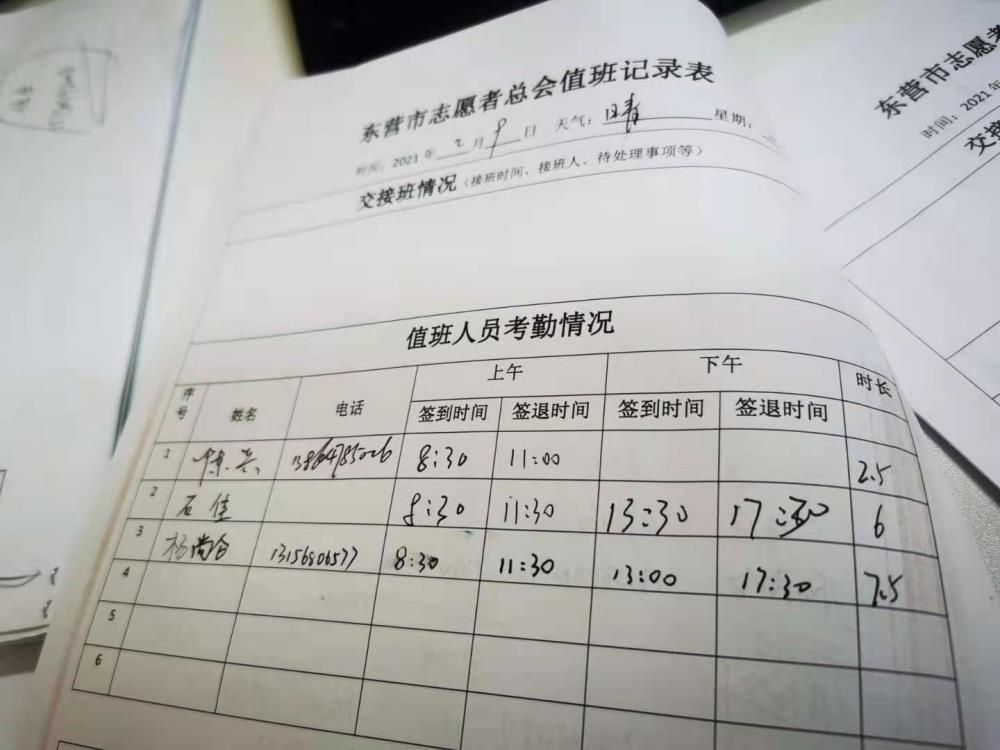 东营市志愿者总会值班记录表
时间：2021年 2 月 9 日 天气：星期：
交接班情况（接班时间、接班人、待处理事项等）
值班人员考勤情况
序号 姓名 电话 上午 下午 时长
签到时间 签退时间 签到时间 签退时间
1 8:30 11:00 2.5
2 石佳 8:30 11:30 13:30 17:30 6
3 杨尚合 13156806577 8:30 11:30 13:00 17:30 7.5
4
5
6
东营市志愿者
时间：2021年
交接